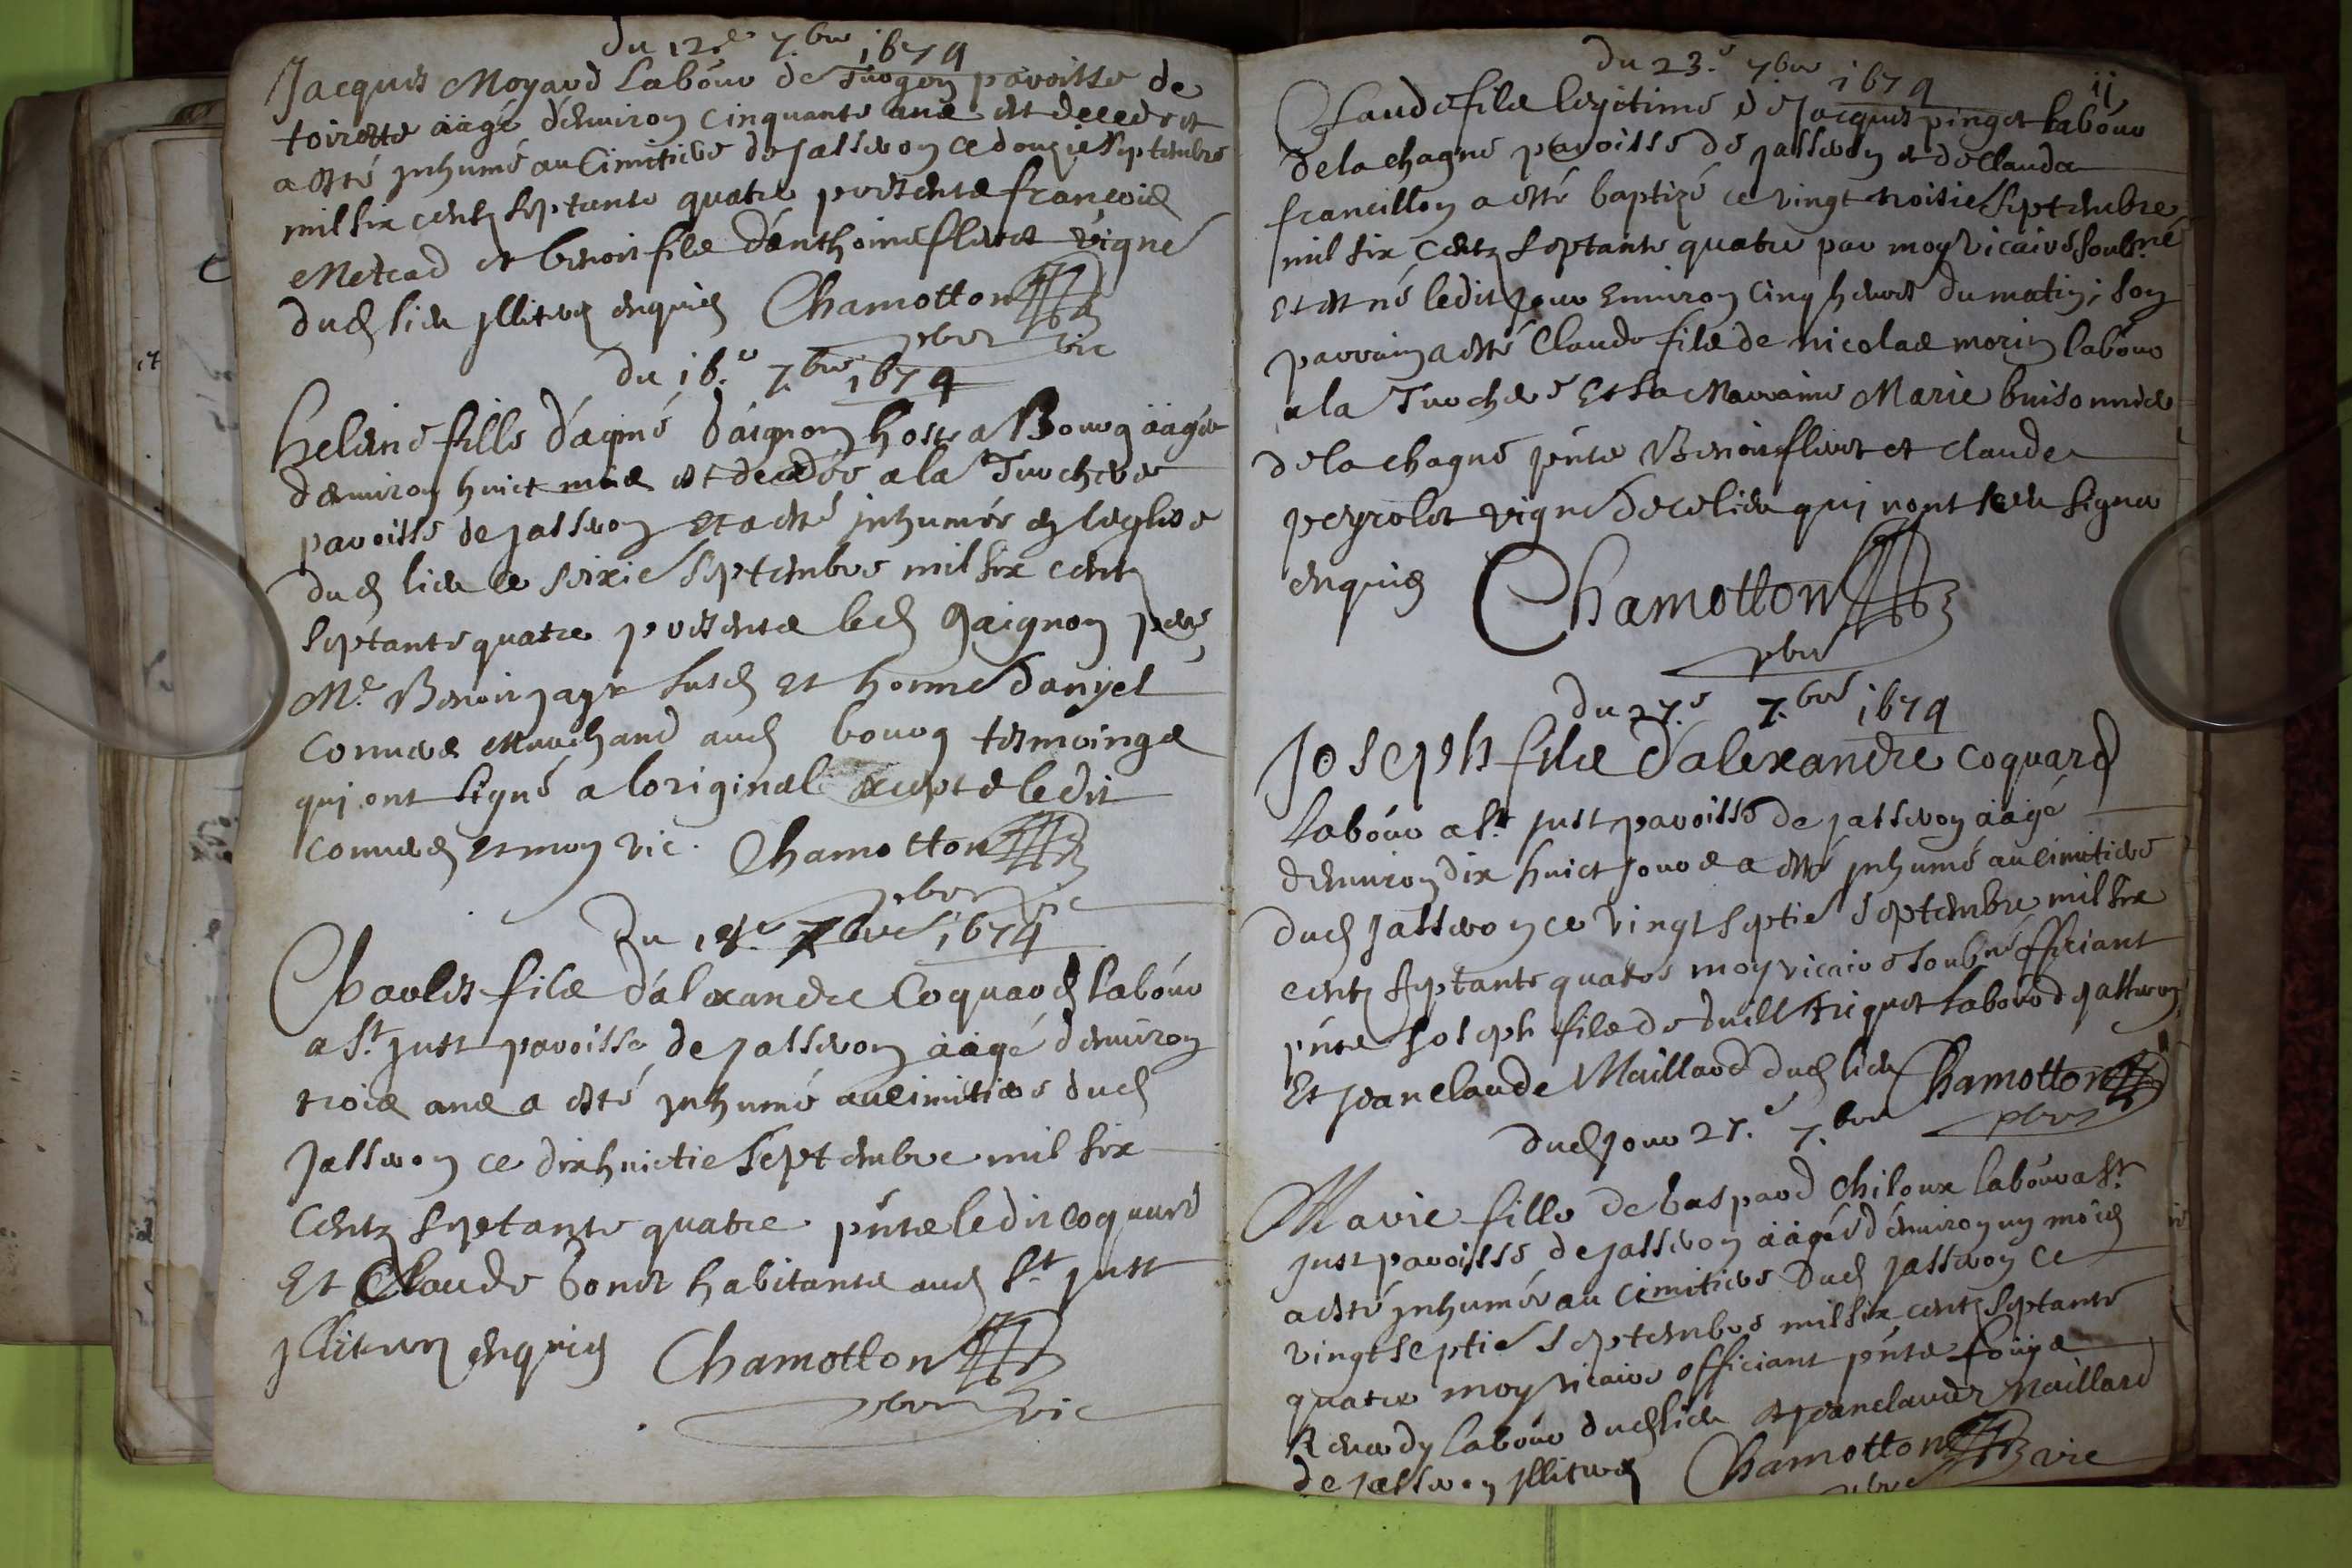 du 12.e 7.bre 1674
Jacques Moyard Labour de Turgon parroisse de
toirette aagé d'environ cinquante ans est decedé et
a esté inhumé au Cimitiere de Jasseron ce douzie Septembre
mil six centz septante quatre presents françois
Metrad et benoit filz d'anthoine flivet vigne
dud lieu illiterez enquis Chamotton
pbre vic
du 16.e 7.bre 1674
helene fille d'aymé Gaignon hoste a Bourg aagée
d'environ huict mois est decedée a la Trochere
paroisse de Jasseron et a esté inhumée en leglise
dud lieu ce seizie Septembre mil six centz
septante quatre presents led Gaignon pere
Me. Benoit jayr susd et honne danyel
marchand aud bourg tesmoings
qui ont signé a loriginal excepté ledit
et moy vic. Chamotton
pbre vic
Du 18.e 7bre 1674
Charles filz d'alexandre Coquard labour
a St. Just paroisse de Jasseron aagé denviron
trois ans a esté inhumé au cimitiere dud
Jasseron ce dixhuictie Septembre mil six
Centz septante quatre pnts ledit coquard
Et Claude bonet habitants aud St. Just
illiterez enquis Chamotton
pbre vic
11
du 23.e 7.bre 1674
Claude filz legitime de Jacques pinget labour
de la chagne paroisse de Jasseron et de Clauda
francillon a esté baptizé ce vingt troisie Septembre
mil six Centz septante quatre par moy vicaire soubne
et est né ledit jour environ cinq heures du matin; son
parrain a esté Claude filz de nicolas morin labour
a la Trochere et sa Marraine Marie buisonnier
de la chagne pnts Benoit flivet et claude
peyrolet vigne de ce lieu qui nont sceu signer
enquis Chamotton
pbre
du 27.e 7.bre 1674
Joseph filz d'alexandre coquard
labour a St Just paroisse de Jasseron aagé
denviron dix huict jours a esté inhumé au cimitiere
dud Jasseron ce vingt septie Septembre mil six
centz septante quatre moy vicaire soubne officiant
pnts Joseph filz de Guill triquet labour de Jasseron
Et Jean claude Maillard dud lieu Chamotton
pbre
dud jour 27.e 7.bre
Marie fille de Gaspard Chiloux labour a St
Just paroisse de Jasseron aagée d'environ un mois
a esté inhumée au cimitiere dud Jasseron ce
vingt septie Septembre mil six centz septante
quatre moy vicaire officiant pnts
labour dud lieu et Jean claude Maillard
de Jasseron illiterez Chamotton vic
pbre